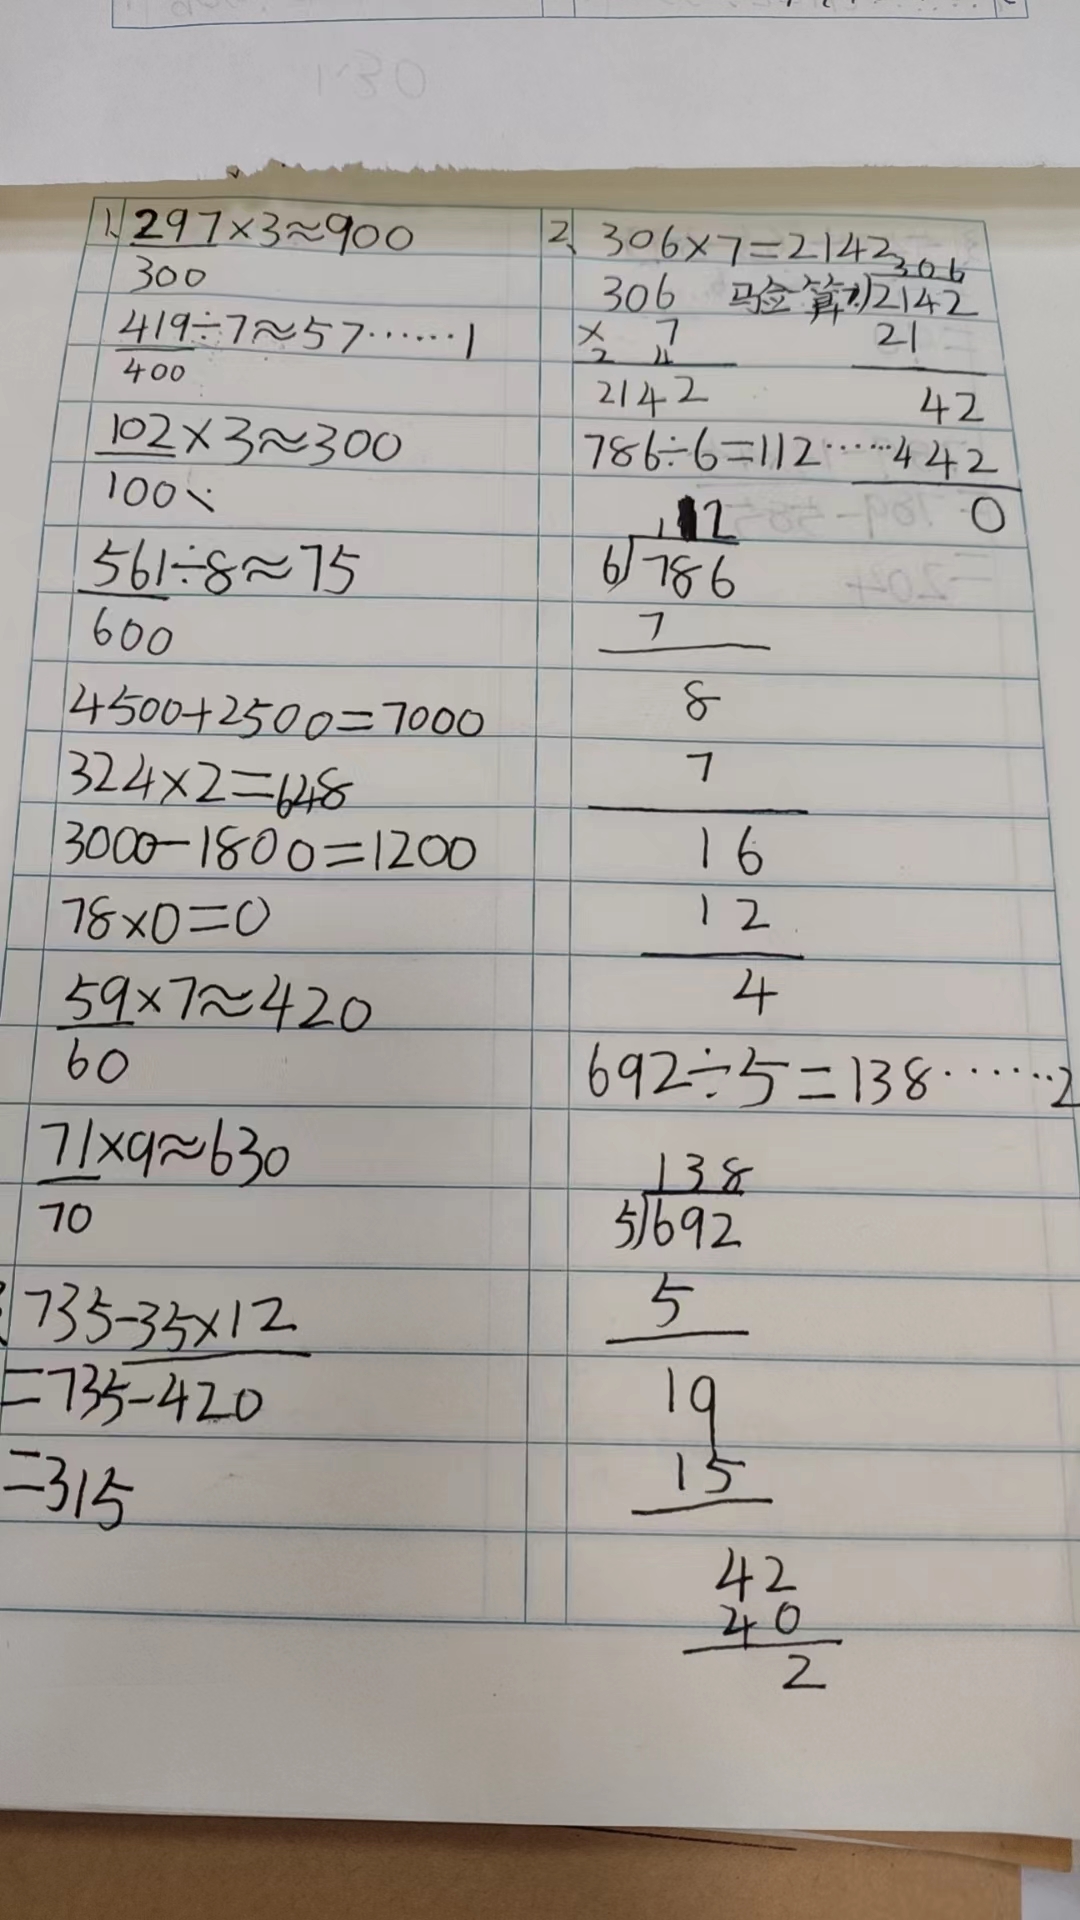 1、297×3≈900
300
419÷7≈57……1
400
102×3≈300
100
561÷8≈75
600
4500+2500=7000
324×2=648
3000-1800=1200
78×0=0
59×7≈420
60
71×9≈630
70
735-35×12
=735-420
=315
2、306×7=2142
306
× 7
2 4
2142
验算:
306
7)2142
21
42
42
0
786÷6=112……4
112
6)786
7
8
7
16
12
4
692÷5=138……2
138
5)692
5
19
15
42
40
2